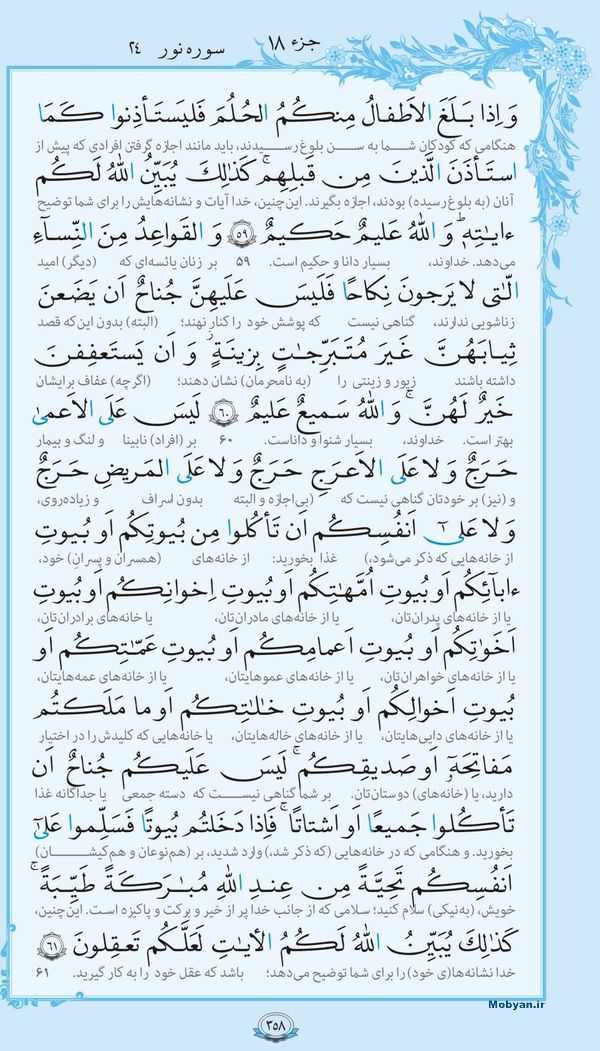 جزء ۱۸ سوره نور ۲۴
وَ اِذا بَـلَغَ الاَطفـالُ مِنكُـمُ الحُلُـمَ فَليَسـتَـأذِنوا كَـمَا
هنگامی که کودکان شـما به سـن بلوغ رسـیدند، باید مانند اجازه گرفتن افرادی که پیش از
استَـأذَنَ الَّذينَ مِن قَبلِهِم ۚ كَذٰلِكَ يُبَيِّنُ اللهُ لَكُم
آنان (به بلوغ رسیده) بودند، اجازه بگیرند. این‌چنین، خدا آیات و نشانه‌هایش را برای شما توضیح
ءايٰتِهٖ ۗ وَ اللهُ عَليمٌ حَكيمٌ ﴿۵۹﴾ وَ القَواعِدُ مِنَ النِّسـآءِ
می‌دهد. خداوند، بسیار دانا و حکیم است. ۵۹ بر زنان یائسه‌ای که (دیگر) امید
الّٰتى لا يَرجونَ نِكاحًا فَلَيسَ عَلَيهِنَّ جُناحٌ اَن يَضَعنَ
زناشویی ندارند، گناهی نیست که پوشش خود را کنار نهند؛ (البته) بدون این‌که قصد
ثِيـابَهُـنَّ غَيـرَ مُتَبَـرِّجـٰتٍ بِزينَةٍ ۖ وَ اَن يَستَعفِفنَ
داشته باشند زیور و زینتی را (به نامحرمان) نشان دهند؛ (اگرچه) عفاف برایشان
خَيرٌ لَهُنَّ ۗ وَ اللهُ سَميعٌ عَليمٌ ﴿۶۰﴾ لَيسَ عَلَى الاَعمىٰ
بهتر است. خداوند، بسیار شنوا و داناست. ۶۰ بر (افراد) نابینا و لنگ و بیمار
حَـرَجٌ وَ لا عَلَى الاَعـرَجِ حَـرَجٌ وَ لا عَلَى المَـريضِ حَـرَجٌ
و (نیز) بر خودتان گناهی نیست که (بی‌اجازه و البته بدون اسراف و زیاده‌روی،
وَ لا عَلىٰٓ اَنفُسِـكُم اَن تَأكُلوا مِن بُيوتِكُم اَو بُيوتِ
از خانه‌هایی که ذکر می‌شود،) غذا بخورید: از خانه‌های (همسران و پسرانِ) خود،
ءابآئِكُم اَو بُيوتِ اُمَّهٰتِكُم اَو بُيوتِ اِخوانِكُم اَو بُيوتِ
یا از خانه‌های پدران‌تان، یا از خانه‌های مادران‌تان، یا خانه‌های برادران‌تان،
اَخَوٰتِكُم اَو بُيوتِ اَعمامِكُم اَو بُيوتِ عَمّٰتِكُم اَو
یا از خانه‌های خواهران‌تان، یا از خانه‌های عموهایتان، یا از خانه‌های عمه‌هایتان،
بُيوتِ اَخوالِكُم اَو بُيوتِ خٰلٰتِكُم اَو ما مَلَكتُم
یا از خانه‌های دایی‌هایتان، یا از خانه‌های خاله‌هایتان، یا خانه‌هایی که کلیدش را در اختیار
مَفاتِحَهٗٓ اَو صَديقِكُم ۚ لَيسَ عَلَيكُم جُناحٌ اَن
دارید، یا (خانه‌های) دوستان‌تان. بر شما گناهی نیست که دسته جمعی یا جداگانه غذا
تَأكُلوا جَميعًا اَو اَشتاتًا ۚ فَاِذا دَخَلتُم بُيوتًا فَسَلِّموا عَلىٰٓ
بخورید. و هنگامی که در خانه‌هایی (که ذکر شد،) وارد شدید، بر (هم‌نوعان و هم‌کیشـان)
اَنفُسِكُم تَحِيَّةً مِن عِندِ اللهِ مُبٰرَكَةً طَيِّبَةً ۚ
خویش، (به‌نیکی) سلام کنید؛ سلامی که از جانب خدا پر از خیر و برکت و پاکیزه است. این‌چنین،
كَذٰلِكَ يُبَيِّنُ اللهُ لَكُمُ الأيٰتِ لَعَلَّكُم تَعقِلونَ ﴿۶۱﴾
خدا نشانه‌ها(ی خود) را برای شما توضیح می‌دهد؛ باشد که عقل خود را به کار گیرید. ۶۱
Mobyan.ir
۳۵۸